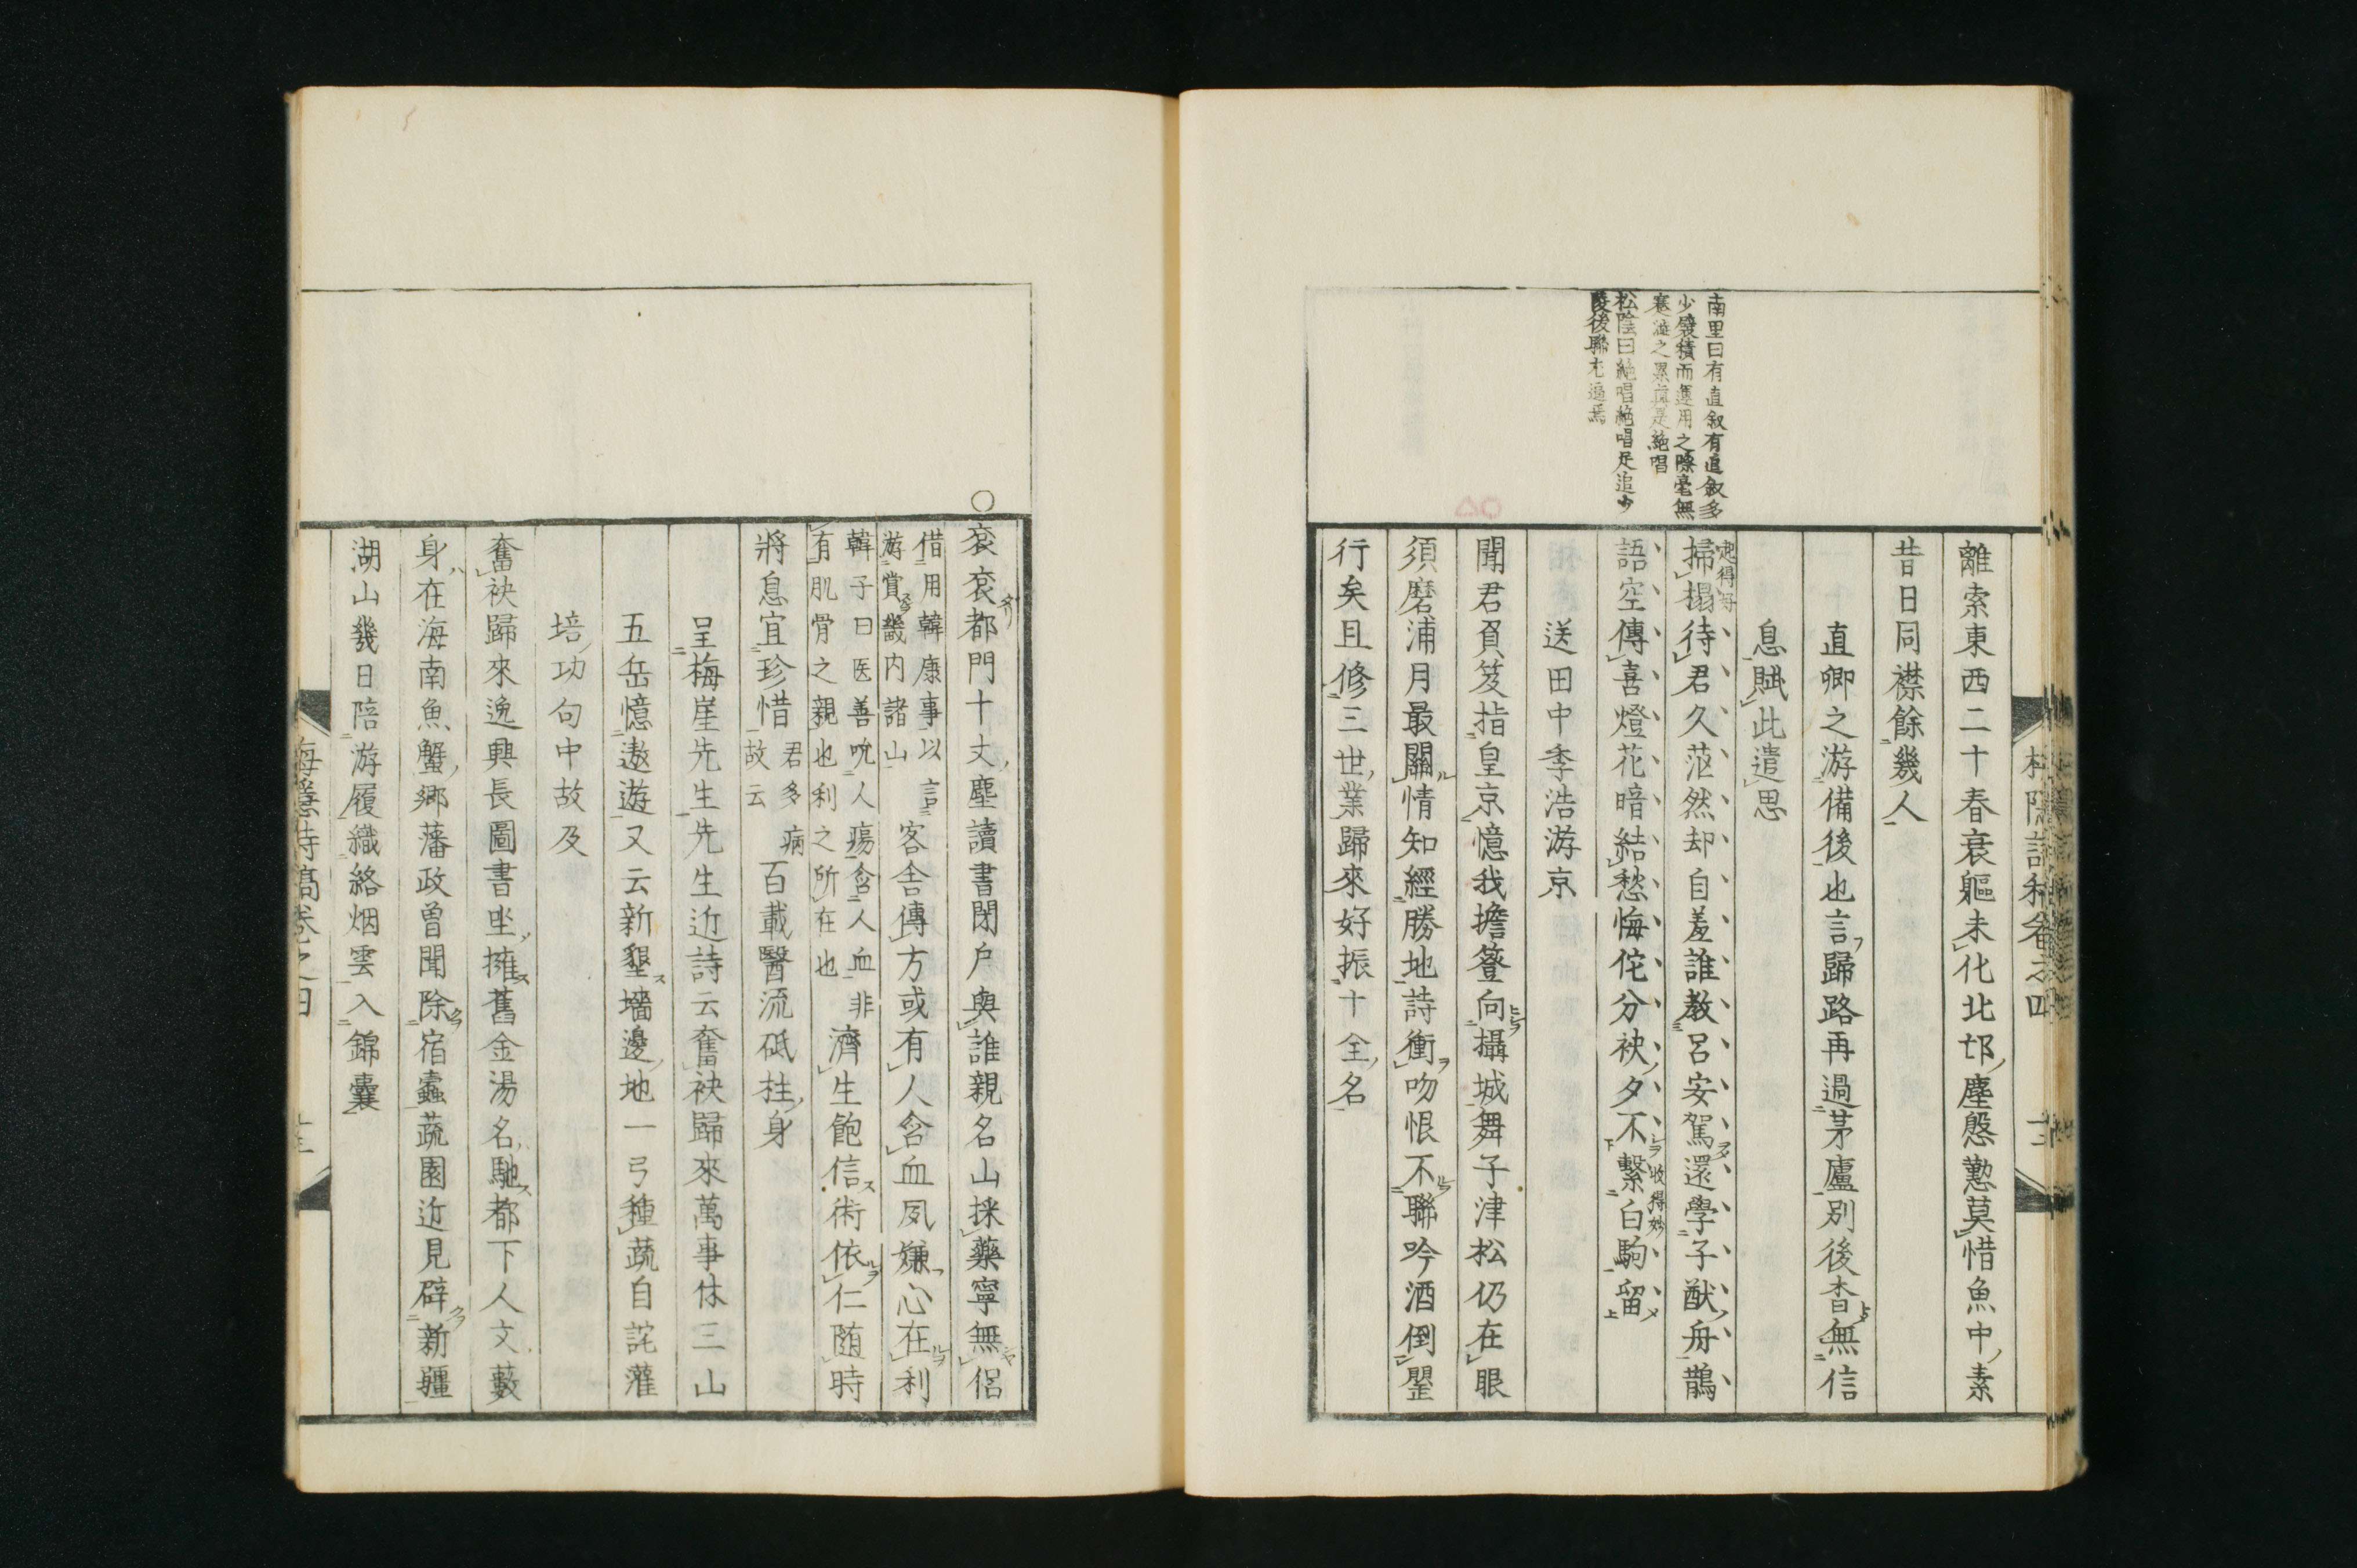 離索東西二十春衰軀未化北邙塵慇懃莫惜魚中素
昔日同襟餘幾人
直卿之游備後也言歸路再過茅廬別後杳無信
息賦此遣思
起得好
掃榻待君久茫然却自羞誰教呂安駕還學子猷舟鵲
語空傳喜燈花暗結愁悔佗分袂夕不繫白駒留
收得妙
送田中季浩游京
聞君負笈指皇京憶我擔簦向攝城舞子津松仍在眼
須磨浦月最關情知經勝地詩衝吻恨不聯吟酒倒罌
行矣且修三世業歸來好振十全名
南里曰有直敘有直敘多
少襞積而運用之際毫無
蹇澁之累真是絶唱
松陰曰絶唱絶唱足追少
陵後聯尤逼焉
梅隱詩稿卷之四
○
袞袞都門十丈塵讀書閉戶與誰親名山採藥寧無侶
借用韓康事以言
游賞畿内諸山
客舍傳方或有人含血夙嫌心在利
韓子曰医善吮人瘍含人血非
有肌骨之親也利之所在也
濟生飽信術依仁随時
將息宜珍惜
君多病
故云
百載醫流砥柱身
呈梅崖先生先生近詩云奮袂歸來萬事休三山
五岳憶遨遊又云新墾墻邊地一弓種蔬自詫灌
培功句中故及
奮袂歸來逸興長圖書坐擁舊金湯名馳都下人文藪
身在海南魚蟹鄉藩政曾聞除宿蠹蔬園近見辟新疆
湖山幾日陪游履織絡烟雲入錦囊
梅隱詩稿卷之四